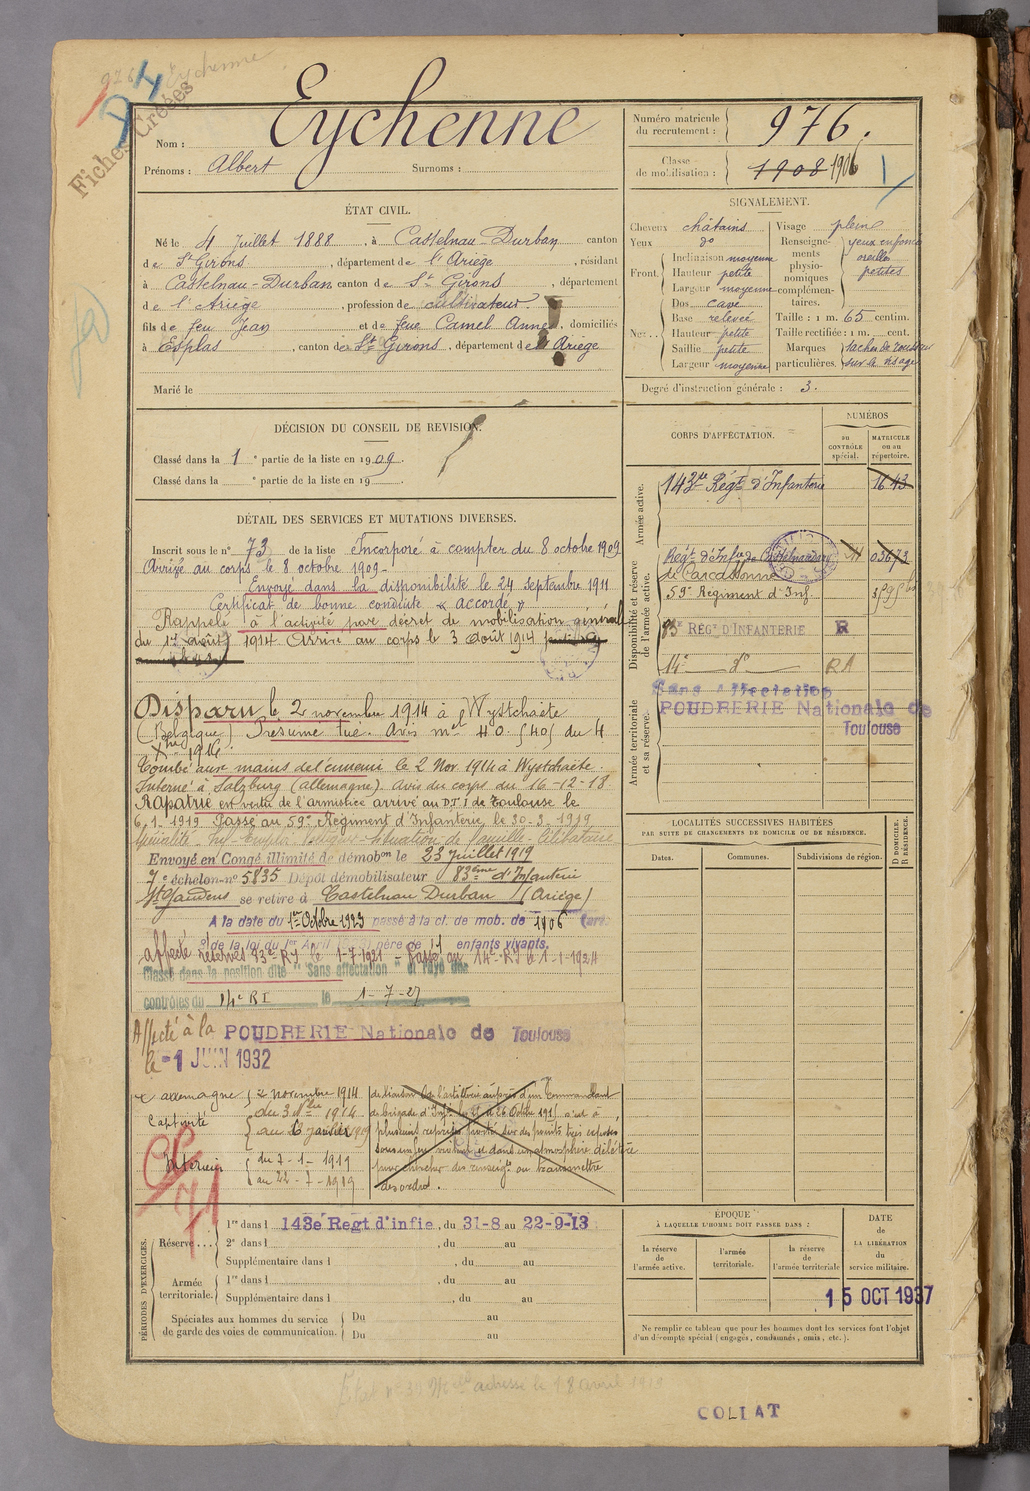 Eychenne
Fiches Créées
Nom : Eychenne
Prénoms : Albert Surnoms :
Numéro matricule du recrutement : 976.
Classe de mobilisation : 1908 1906
ÉTAT CIVIL.
Né le 4 Juillet 1888, à Castelnau-Durban canton
de St Girons, département de l'Ariège, résidant
à Castelnau-Durban canton de St Girons, département
de l'Ariège, profession de cultivateur
fils de feu Jean et de feue Camel Anne, domiciliés
à Esplas, canton de St Girons, département de l'Ariège
Marié le
SIGNALEMENT.
Cheveux châtains
Yeux do
Front. Inclinaison moyenne
Hauteur petite
Largeur moyenne
Nez Dos cave
Base relevée
Hauteur petite
Saillie petite
Largeur moyenne
Visage plein
Renseignements physionomiques complémentaires. yeux enfoncés oreilles petites
Taille : 1 m. 65 centim.
Taille rectifiée : 1 m. cent.
Marques particulières. taches de rousseur sur le visage
Degré d'instruction générale : 3.
DÉCISION DU CONSEIL DE REVISION.
Classé dans la 1e partie de la liste en 1909.
Classé dans la e partie de la liste en 19
DÉTAIL DES SERVICES ET MUTATIONS DIVERSES.
Inscrit sous le n° 73 de la liste Incorporé à compter du 8 octobre 1909
Arrivé au corps le 8 octobre 1909-
Envoyé dans la disponibilité le 24 septembre 1911
Certificat de bonne conduite « accordé »
Rappelé à l'activité par décret de mobilisation générale
du 1er août 1914 Arrivé au corps le 3 août 1914
Disparu le 2 novembre 1914 à Wystchaete
(Belgique) Présumé tué. Avis mel 40.540 du 4
Xbre 1914.
Tombé aux mains de l'ennemi le 2 Nov 1914 à Wystchaete.
Interné à Salzburg (allemagne). Avis du corps du 16-12-18.
Rapatrié en vertu de l'armistice arrivé au D.T.I de Toulouse le
6-1-1919 Passé au 59e Régiment d'Infanterie, le 30-3-1919
Situation de famille Célibataire
Envoyé en Congé illimité de démobon le 23 Juillet 1919
7e échelon n° 5835 Dépôt démobilisateur 83ème d'Infanterie
St Gaudens se retire à Castelnau Durban (Ariège)
A la date du 1er Octobre 1923 passé à la cl. de mob. de 1906
de la loi du 1er Avril père de enfants vivants.
affecté réserves 83e RI le 1-7-1921 - Passé au 14e RI le 1-1-1924
Classé dans la position dite "Sans affectation" et rayé des
contrôles du 14e RI le 1-7-27
Affecté à la POUDRERIE Nationale de Toulouse
le -1 JUIN 1932
allemagne 2 novembre 1914
Captivité du 3 Nbre 1914
au 6 janvier 1919
Intérieur du 7-1-1919
au 22-7-1919
de liaison de l'artillerie auprès d'un Commandant
de brigade d'Infie le 25 et 26 Octobre 1915 s'est à
plusieurs reprises porté sur des points très exposés
sous un feu violent et dans une atmosphère délétère
pour chercher des renseigts ou transmettre
des ordres.
CP
71
CORPS D'AFFECTATION.
NUMÉROS
au CONTRÔLE spécial.
MATRICULE ou au répertoire.
Armée active.
143e Régt d'Infanterie 1643
Disponibilité et réserve de l'armée active.
Régt d'Infie de Castelnaudary 03673
de Carcassonne
59e Régiment d'Inf.
83e RÉGt D'INFANTERIE R
14e do R1
Armée territoriale et sa réserve.
Sans Affectation
POUDRERIE Nationale de
Toulouse
LOCALITÉS SUCCESSIVES HABITÉES
PAR SUITE DE CHANGEMENTS DE DOMICILE OU DE RÉSIDENCE.
Dates. Communes. Subdivisions de région.
D DOMICILE. R RÉSIDENCE.
PÉRIODES D'EXERCICES.
Réserve 1re dans l 143e Regt d'infie, du 31-8 au 22-9-13
2e dans l , du au
Supplémentaire dans l , du au
Armée territoriale. 1re dans l , du au
Supplémentaire dans l , du au
Spéciales aux hommes du service de garde des voies de communication. Du au
Du au
EPOQUE
À LAQUELLE L'HOMME DOIT PASSER DANS :
la réserve de l'armée active.
l'armée territoriale.
la réserve de l'armée territoriale
DATE de LA LIBÉRATION du service militaire.
15 OCT 1937
Ne remplir ce tableau que pour les hommes dont les services font l'objet
d'un décompte spécial (engagés, condamnés, omis, etc.).
COLIAT